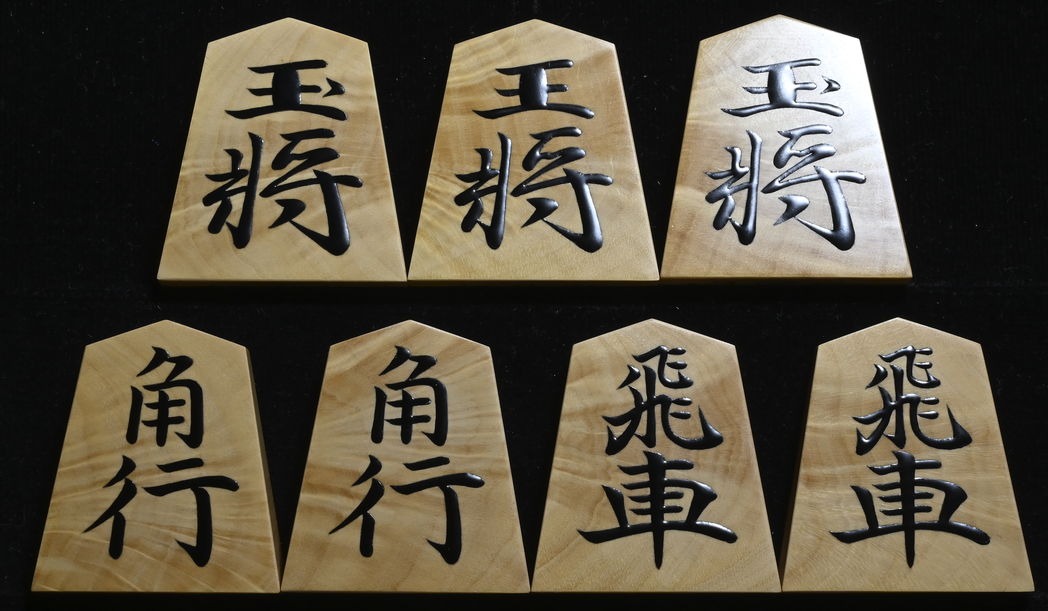 玉將
王將
玉將
角行
角行
飛車
飛車